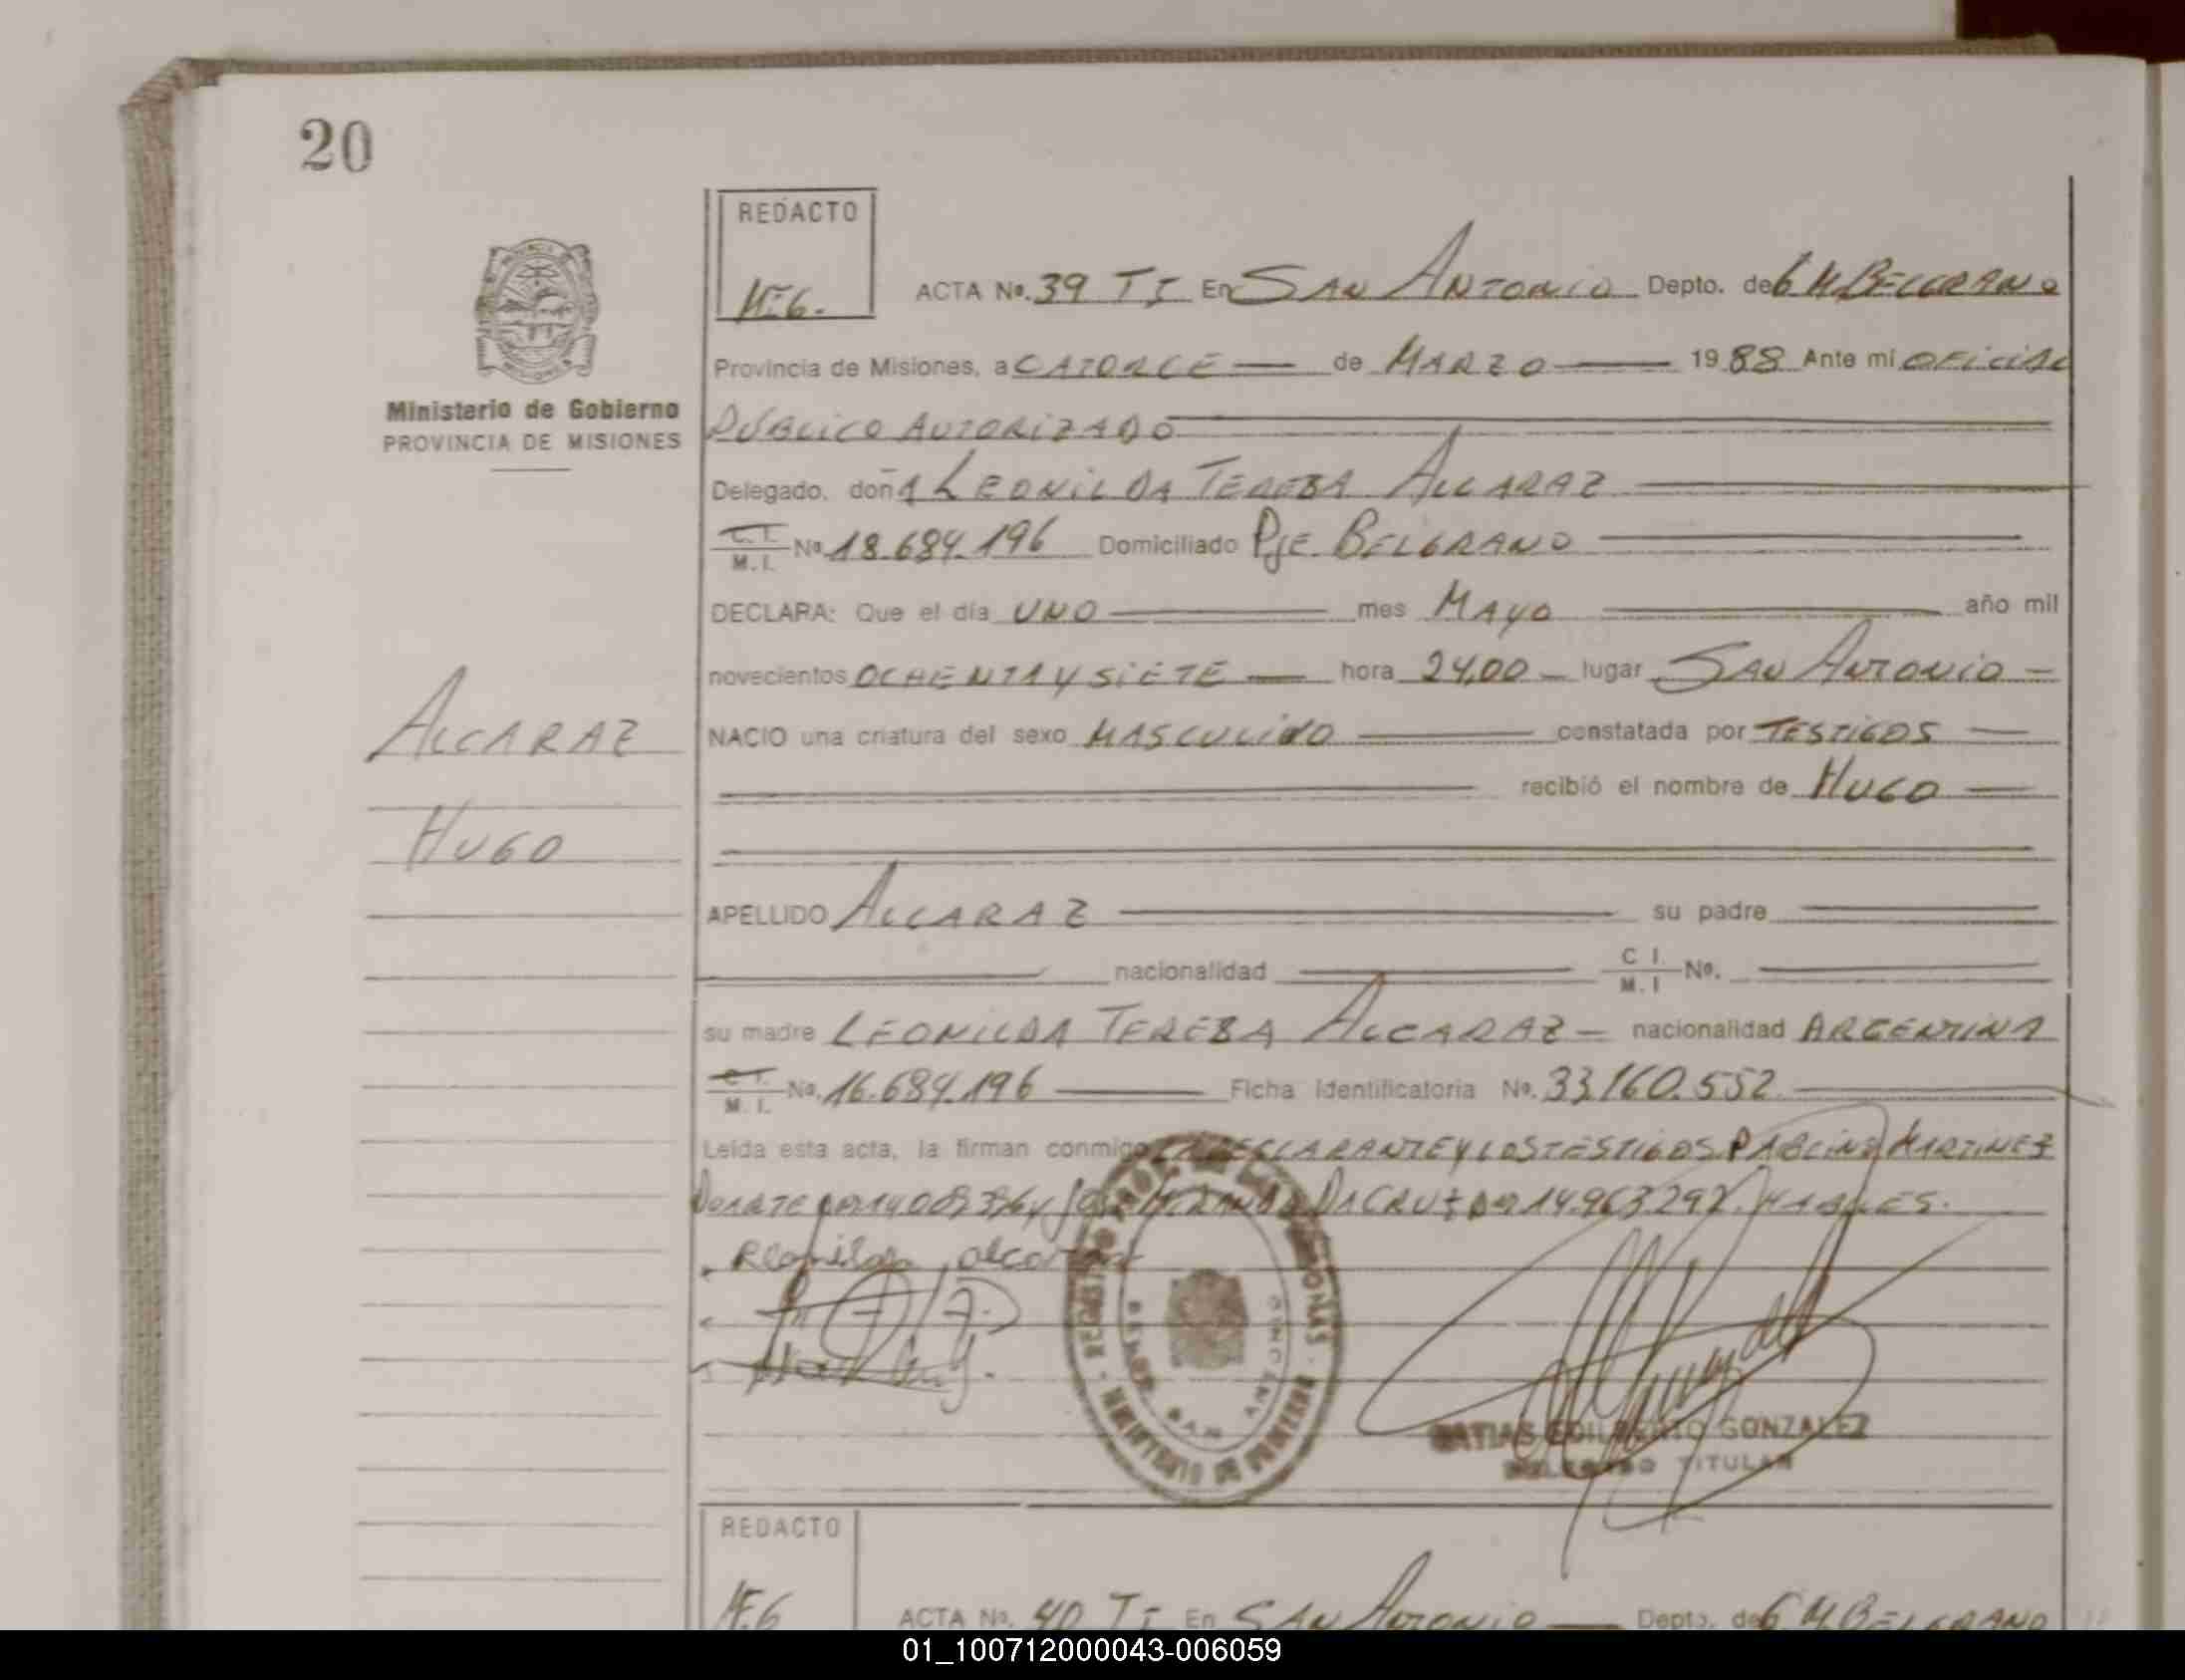 20
REDACTO
ACTA Nº. 39 TI En SAN ANTONIO Depto. de G M. BELGRANO
Provincia de Misiones, a CATORCE de MARZO 1988 Ante mi OFICIAL
PÚBLICO AUTORIZADO
Ministerio de Gobierno
PROVINCIA DE MISIONES
Delegado, doña LEONILDA TEREBA ALCARAZ
C. I. M. I. Nº 18.684.196 Domiciliado Pje. BELGRANO
DECLARA: Que el día UNO mes MAYO año mil
novecientos OCHENTA Y SIETE hora 24,00 lugar SAN ANTONIO
ALCARAZ
NACIO una criatura del sexo MASCULINO constatada por TESTIGOS
recibió el nombre de HUGO
HUGO
APELLIDO ALCARAZ su padre
nacionalidad C I. M. I Nº.
su madre LEONILDA TEREBA ALCARAZ nacionalidad ARGENTINA
C I. M. I. Nº. 16.684.196 Ficha Identificatoria Nº. 33.160.552
Leida esta acta, la firman conmigo LA DECLARANTE Y LOS TESTIGOS MARTINEZ
DUARTE DACRUZ 14.963.292. HABLES.
alcaraz
MATIAS EDILBERTO GONZALEZ
DELEGADO TITULAR
REDACTO
ACTA Nº. 40 TI En SAN ANTONIO Depto. de G M. BELGRANO
01_100712000043-006059